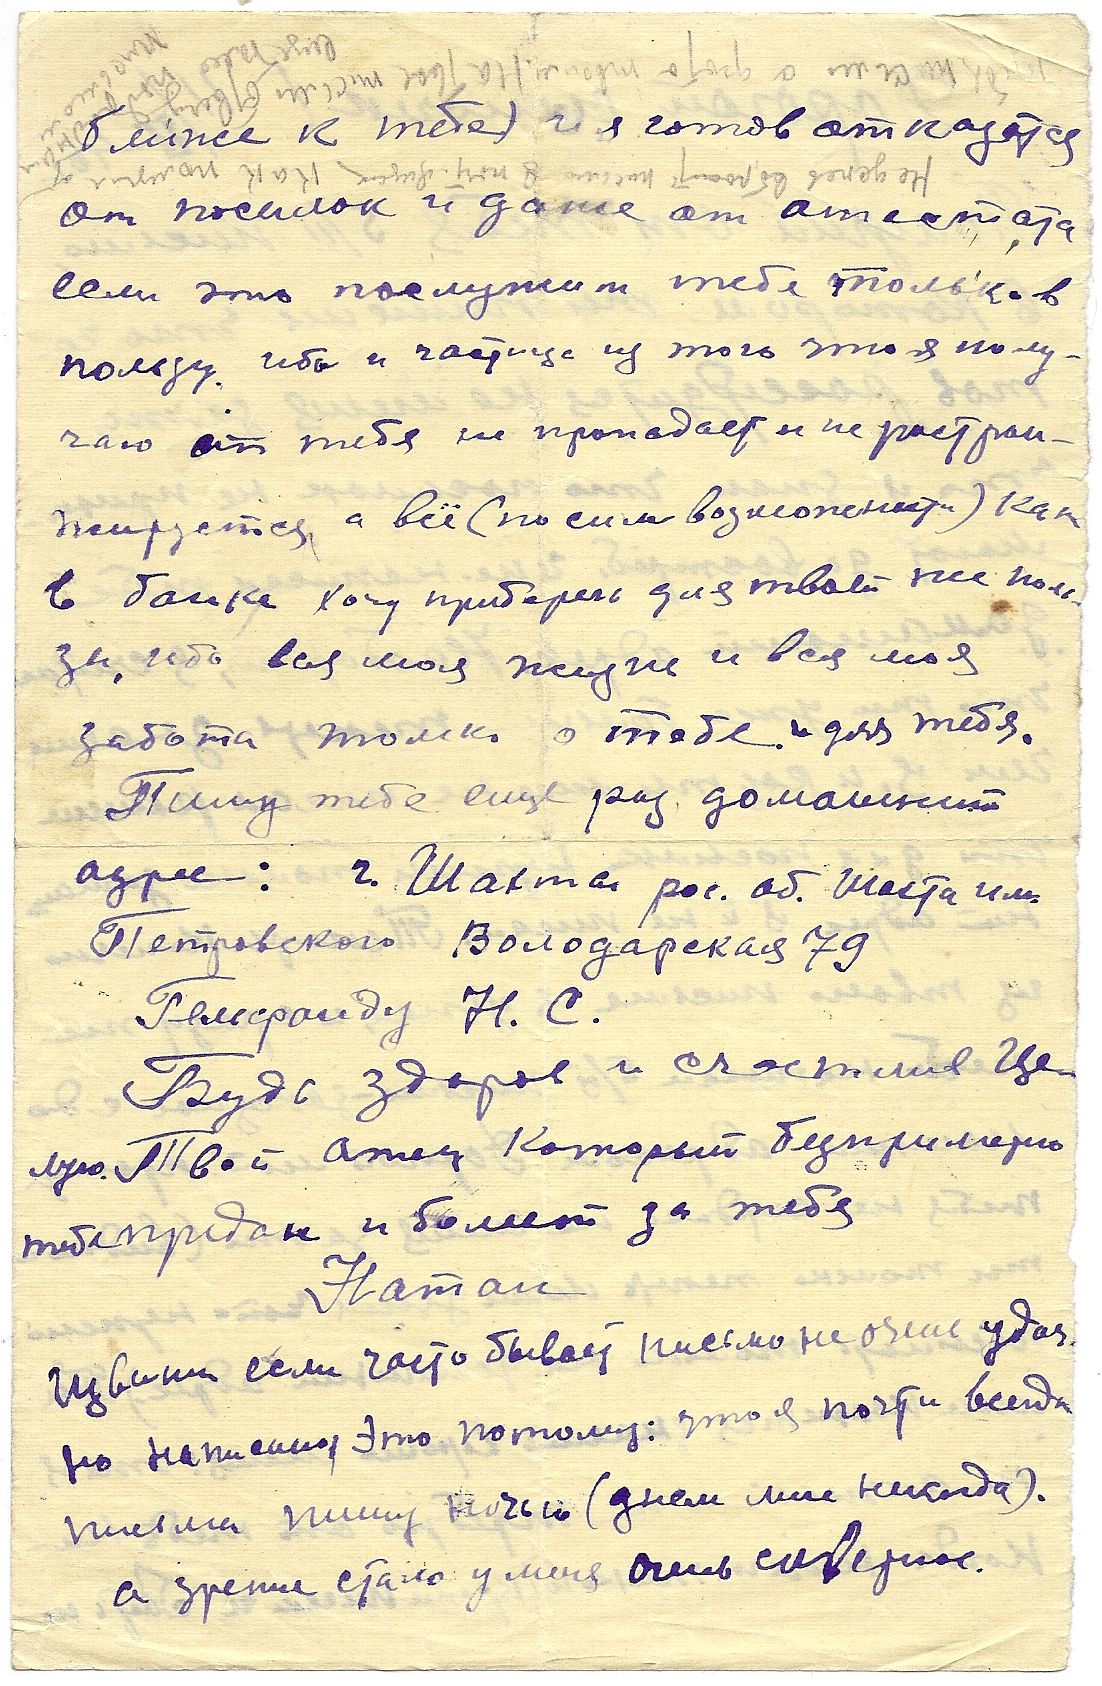 ближе к тебе) и я готов отказатся
от посылок и даже от атестата
если это послужит тебе только в
пользу. ибо и частица из того что я полу-
чаю от тебя не пропадает и не растран-
жируется, а всё (по силе возможности) как
в банке хочу приберечь для твоей же поль-
зы, ибо вся моя жизнь и вся моя
забота только о тебе и для тебя.
Пишу тебе еще раз домашний
адрес: г. Шахты рос. об. шахта им.
Петровского Володарская 79
Гельфанду Н. С.
Будь здоров и счастлив Це-
лую. Твой отец который безпримерно
тебе предан и болеет за тебя
Натан
Извини если часто бывает письмо не очень удач-
но написано, Это потому: что я почти всегда
письма пишу ночью (днем мне никогда).
а зрение стало у меня очень скверное.